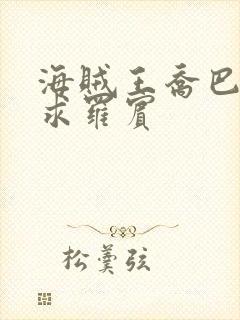 海贼王乔巴
求罗宾
松羹弦